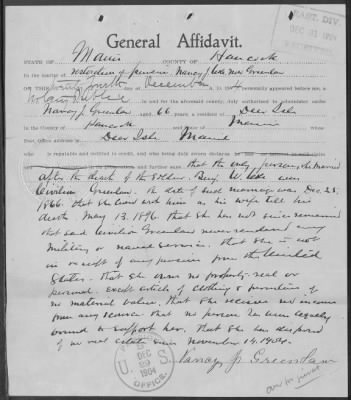 General Affidavit.
STATE OF Maine COUNTY OF Hancock
In the matter of restoration of pension, Nancy J. Cole now Greenlaw
ON THIS twenty fourth December personally appeared before me, a
Notary Public in and for the aforesaid county, duly authorized to administer oaths
Nancy J. Greenlaw aged 66 years, a resident of Deer Isle
in the County of Hancock and State of Maine whose
Post Office address is Deer Isle Maine
that the only person she married
after the death of the soldier Benj. W. Cole was
Greenlaw. The date of such marriage was Dec. 25,
1866. that she lived with him as his wife till his
death May 13, 1896. that she has not since remarried
that said Greenlaw never rendered any
military or naval service. that she is not
in receipt of any pension from the United
States. that she owns no property real or
personal except articles of clothing & furniture of
no material value. that she receives no income
from any source that no person has been legally
bound to support her. that she has disposed
of no real estate since November 14, 1904.
Nancy J. Greenlaw
U. S.
DEC
29
1904
OFFICE.